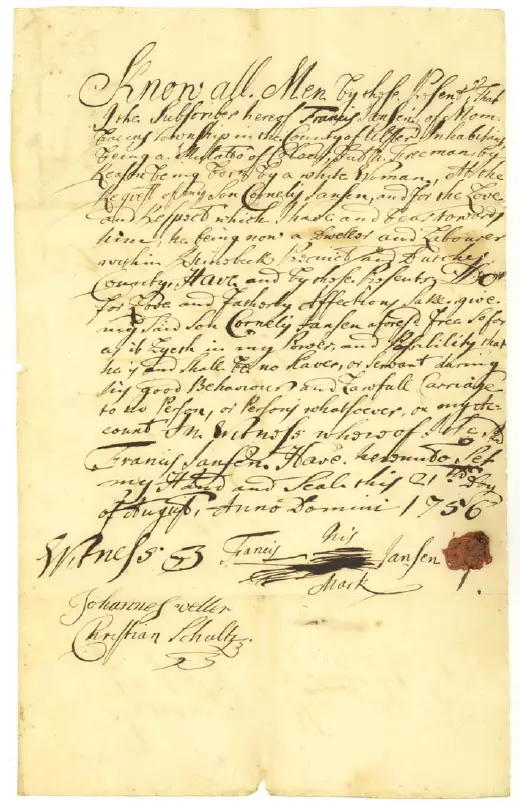 Know all Men by these Present, That
I the Subscriber hereof Francis Jansen, of Mom-
baccus Township in the County of Ulster Inhabiting,
being a Mulatto of Colour, but a Free man by
Reason being born by a white Woman, At the
Request of my son Cornelis Jansen, and for the Love
and Respect which I have and bear towards
him; he being now a Dweller and Labourer
within Precinct and Dutches
County, Have and by these Presents, Do
for Love and fatherly Affections Sake, give
my said Son Cornelis Jansen afores.d Free so far
as it Lyeth in my Power, and Posibility that
he is and Shall be no Slave, or Servant during
his good Behaviour and Lawfull Carriage
to no Person, or Persons whatsoever, on my Ac-
count In Witness whereof I the s.d
Francis Jansen. Have hereunto Set
my Hand and Seale this 21th Day
of August, Anno Domini 1756
Witness Francis his Jansen
Mark
Johannes Weller
Christian Schultz.